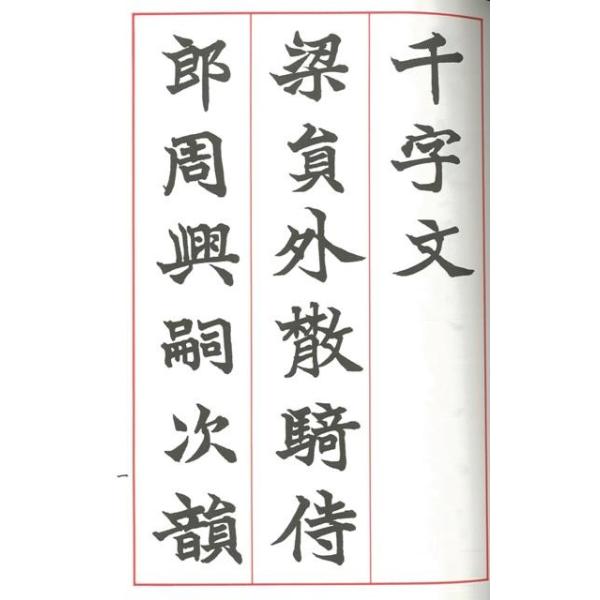 千字文
梁員外散騎侍
郎周興嗣次韻
一